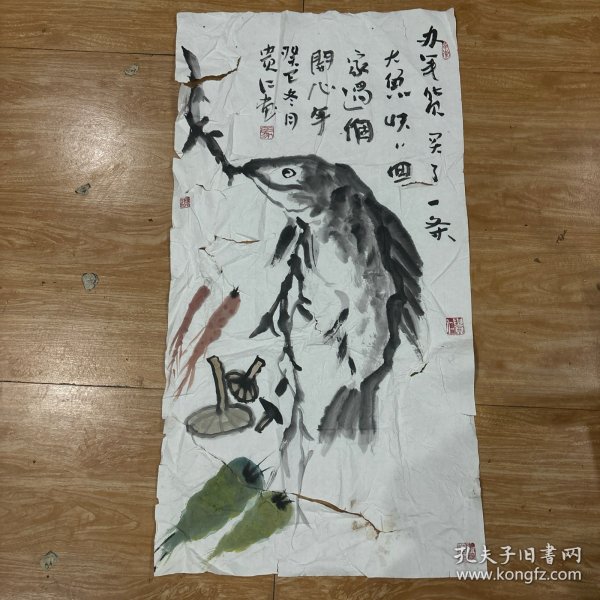 办年货买了一条
大鱼快快回
家过個
開心年
癸巳冬月
贵仁画
孔夫子旧书网
www.kongfz.com